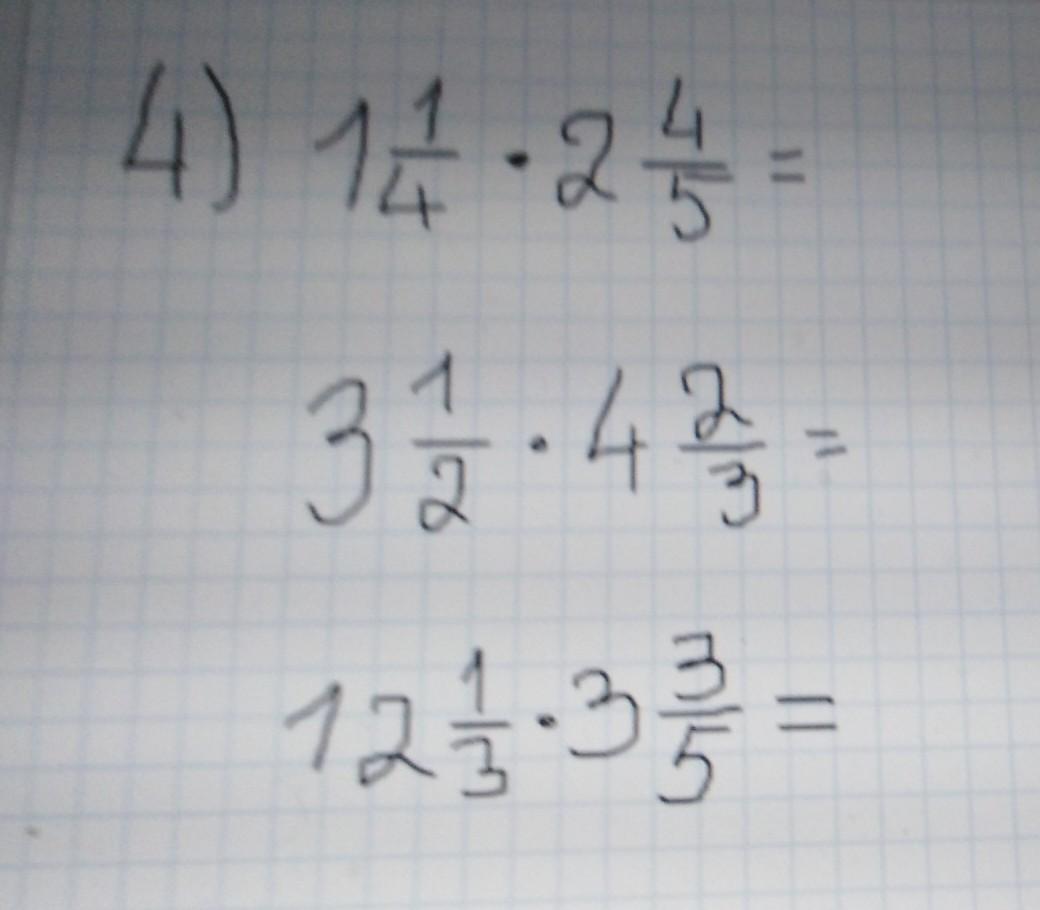 4) 1 1/4 · 2 4/5 =
3 1/2 · 4 2/3 =
12 1/3 · 3 3/5 =